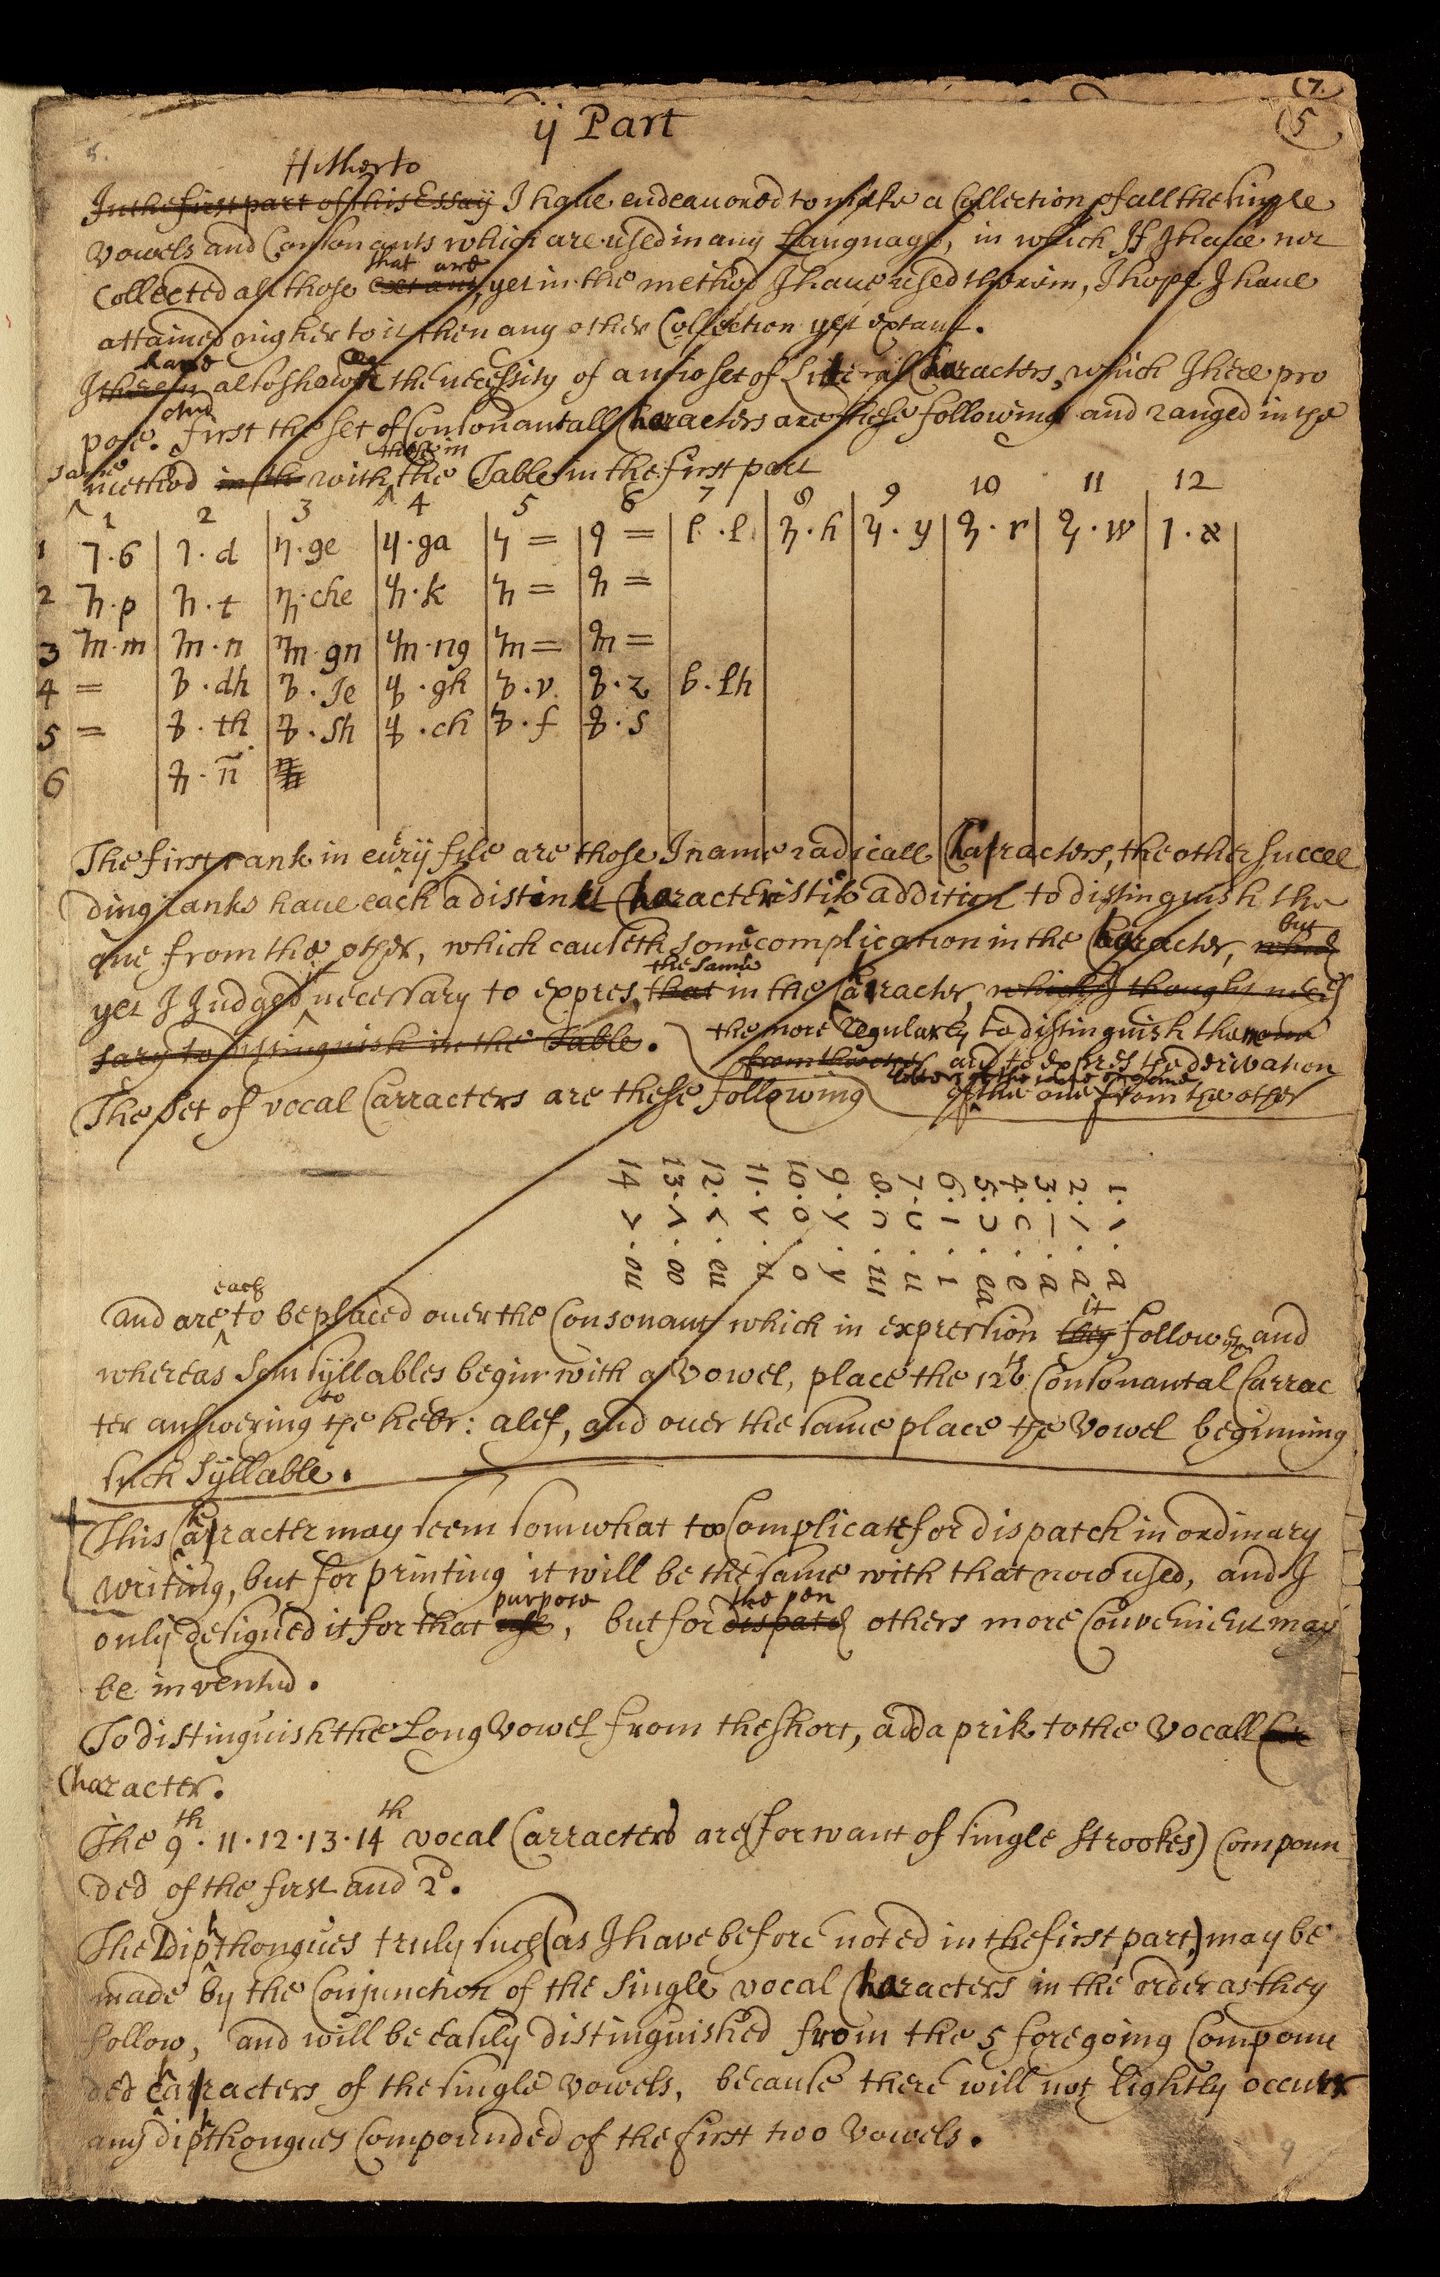 (7.
(5)
5.
ij Part
Hitherto
In the first part of this Essay I haue endeauored to make a Collection of all the single
Vowels and Consonants which are used in any Language, in which If I haue not
that are
Collected all those extant, yet in the method I haue used therein, I hope I haue
attained nigher to it then any other Collection yet extant.
haue
I therein also shown the necessity of an new set of Literal Characters, which I here pro
and
pose. First the set of Consonantall Characters are these following and ranged in the
same therein
method in the with the Table in the first part
1 2 3 4 5 6 7 8 9 10 11 12
1 b d ge ga = = l h y r w א
2 p t che k = =
3 m n gn ng = =
4 = dh Je gh v z lh
5 = th sh ch f s
6 ñ
The first rank in euerij file are those I name radicall Carracters, the other succee
ding ranks haue each a distinct Characteristik addition to distinguish the
one from the other, which causeth some complication in the Character, but which
yet I Judged it necessary to expres, the same that in the Carracter, which I thought neces
sary to distinguish in the Table. the more regularly to distinguish them
from the other and to expres the deriuation
of the one from the other
The set of vocal Carracters are these following
1. a
2. a
3. a
4. e
5. ea
6. i
7. u
8. ııı
9. y
10. o . o
11. u
12. eu
13. oo
14. ou
each it
and are to be placed ouer the Consonant which in expression they followeth and
whereas som syllables begin with a Vowel, place the 12th Consonantal Carrac
to
ter answering the hebr: alef, and ouer the same place the Vowel beginning
such syllable.
This Carracter may seem somwhat too Complicate for dispatch in ordinary
writing, but for printing it will be the same with that now used, and I
purpose the pen
only designed it for that use, but for dispatch others more Convenient may
be invented.
To distinguish the Long Vowel from the short, add a prik to the Vocall
Character.
The 9th. 11. 12. 13. 14th vocal Carracters are (for want of single strookes) Compoun
ded of the first and 2d.
The Diphthongues truly such (as I have before noted in the first part,) may be
made by the Conjunction of the single vocal Characters in the order as they
follow, and will be easily distinguished from the 5 foregoing Compoun
ded Carracters of the single Vowels, because there will not lightly occurr
any diphthongues Compounded of the first two Vowels.
9